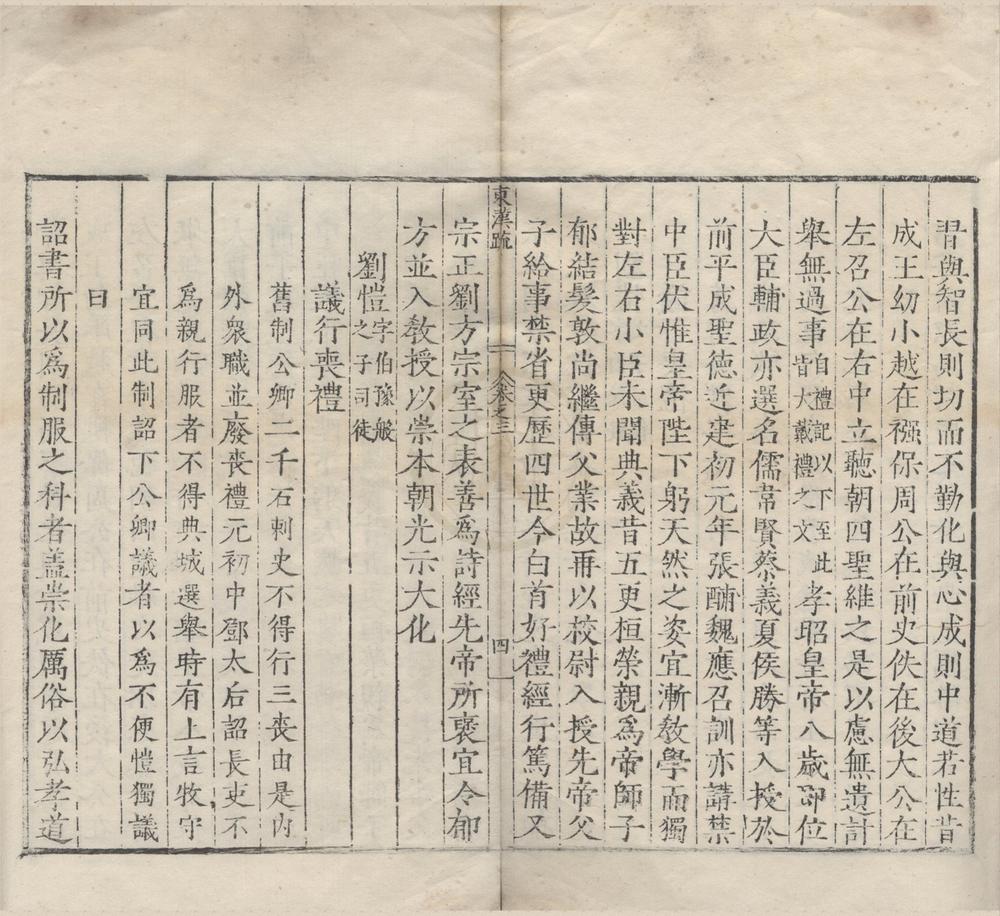 習與智長則切而不勤化與心成則中道若性昔
成王幼小越在襁保周公在前史佚在後大公在
左召公在右中立聽朝四聖維之是以慮無遺計
舉無過事自禮記以下至此皆大戴禮之文孝昭皇帝八歲即位
大臣輔政亦選名儒韋賢蔡義夏侯勝等入授於
前平成聖德近建初元年張酺魏應召訓亦講禁
中臣伏惟皇帝陛下躬天然之姿宜漸敎學而獨
對左右小臣未聞典義昔五更桓榮親為帝師子
郁結髮敦尚繼傳父業故再以校尉入授先帝父
子給事禁省更歷四世今白首好禮經行篤備又
東漢疏 卷之三 四
宗正劉方宗室之表善為詩經先帝所褒宜令郁
方並入敎授以崇本朝光示大化
劉愷字伯豫般之子司徒
議行喪禮
舊制公卿二千石刺史不得行三喪由是內
外衆職並廢喪禮元初中鄧太后詔長吏不
為親行服者不得典城選舉時有上言牧守
宜同此制詔下公卿議者以為不便愷獨議
曰
詔書所以為制服之科者盖崇化厲俗以弘孝道